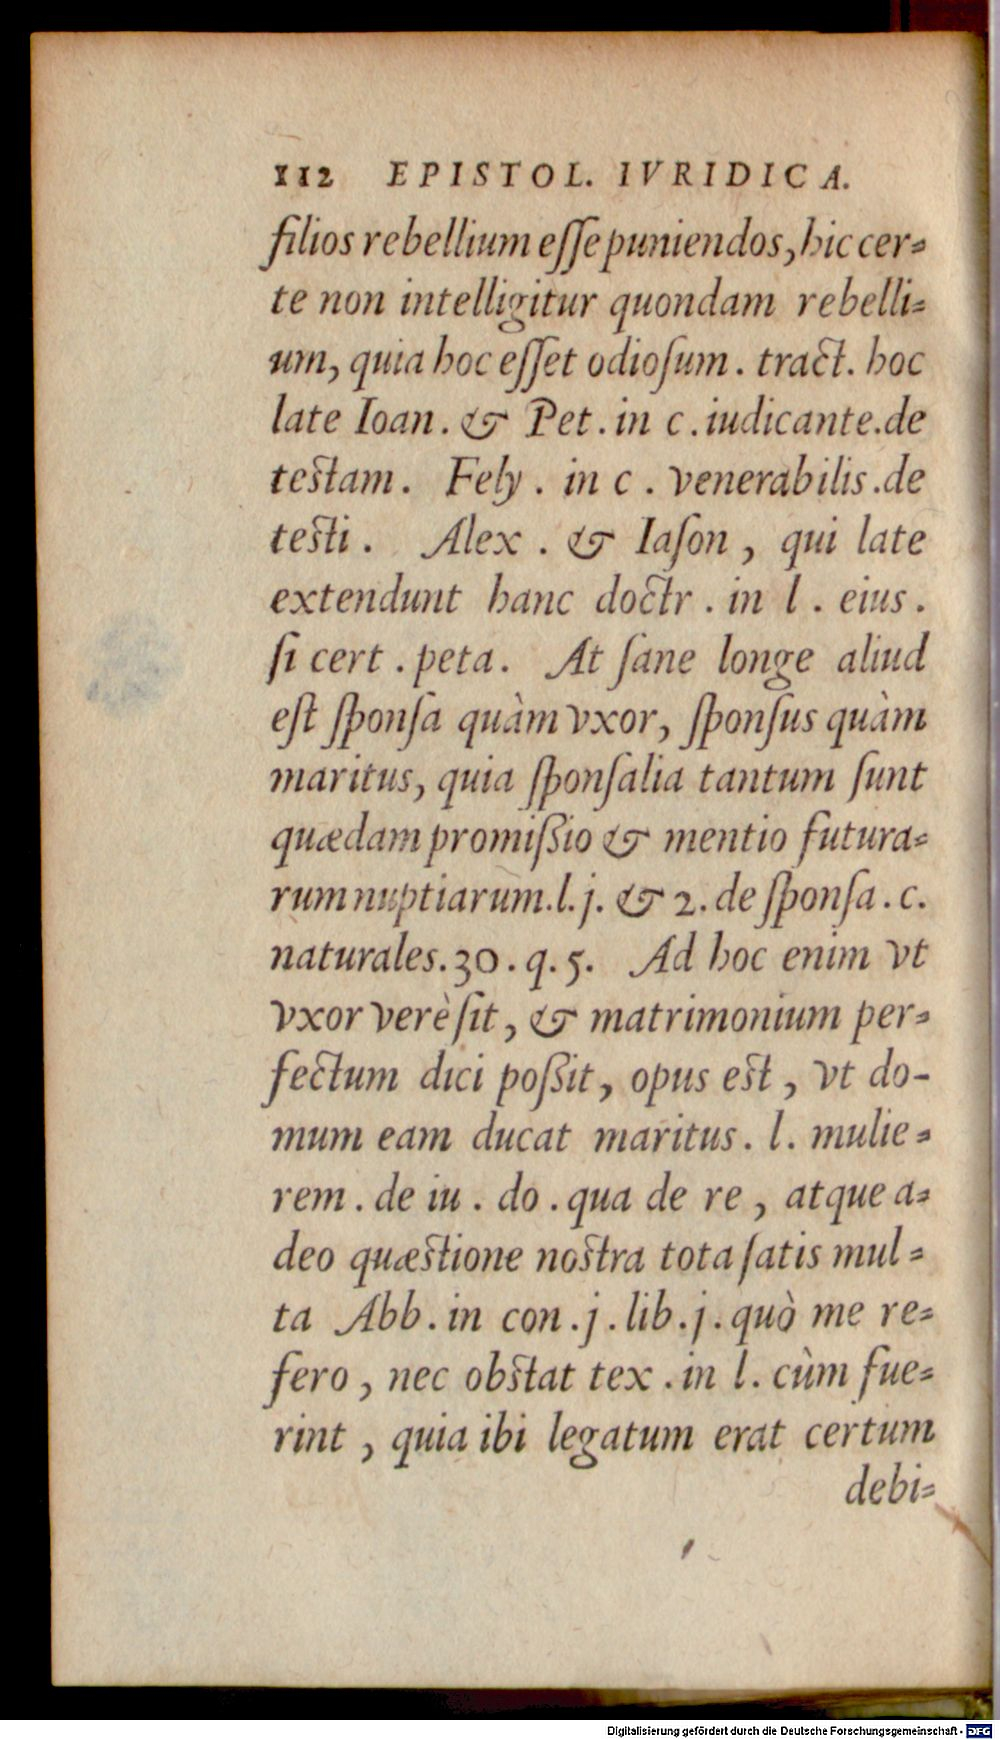 112 EPISTOL. IVRIDICA.
filios rebellium eſſe puniendos, hic cer-
te non intelligitur quondam rebelli-
um, quia hoc eſſet odioſum. tract. hoc
late Ioan. & Pet. in c. iudicante. de
testam. Fely. in c. venerabilis. de
testi. Alex. & Iaſon, qui late
extendunt hanc doctr. in l. eius.
ſi cert. peta. At ſane longe aliud
eſt ſponſa quàm vxor, ſponſus quàm
maritus, quia ſponſalia tantum ſunt
quædam promiſsio & mentio futura-
rum nuptiarum. l. j. & 2. de ſponſa. c.
naturales. 30. q. 5. Ad hoc enim vt
vxor verè ſit, & matrimonium per-
fectum dici poſsit, opus est, vt do-
mum eam ducat maritus. l. mulie-
rem. de iu. do. qua de re, atque a-
deo quæstione nostra tota ſatis mul-
ta Abb. in con. j. lib. j. quò me re-
fero, nec obstat tex. in l. cùm fue-
rint, quia ibi legatum erat certum
debi-
Digitalisierung gefördert durch die Deutsche Forschungsgemeinschaft - DFG